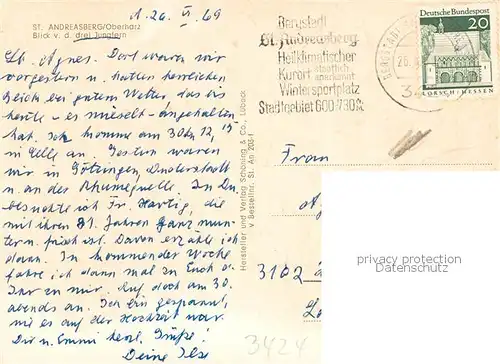 ST. ANDREASBERG/Oberharz
Blick v. d. drei Jungfern
d. 20. VI. 69
Lb. Agnes. Dort waren wir
vorgestern u. hatten herrlichen
bei gutem Wetter, das bis
heute - es nieselt - angehalten
hat. Ich komme am 30. 12,15
in Celle an. Gestern waren
wir in Göttingen, Duderstadt
u. an der Rhumequelle. In Du.
besuchte ich Fr. Hartig, die
mit ihren 81 Jahren ganz mun-
ter u. frisch ist. Davon erzähle ich
dann. In kommender Woche
fahre ich dann mal zu Euch o.
Ihr zu mir. Ruf doch am 30.
abends an. Ich bin gespannt,
wie es auf der Hochzeit war.
Dir u. Emmi herzl. Grüße!
Deine Ilse
Hersteller und Verlag Schöning & Co., Lübeck
v. Bestellnr. St. An 205 f
Bergstadt
St. Andreasberg
Heilklimatischer
Kurort staatlich anerkannt
Wintersportplatz
Stadtgebiet 600-730 m
Deutsche Bundespost
20
LORSCH/HESSEN
Frau
3102
3424
privacy protection
Datenschutz